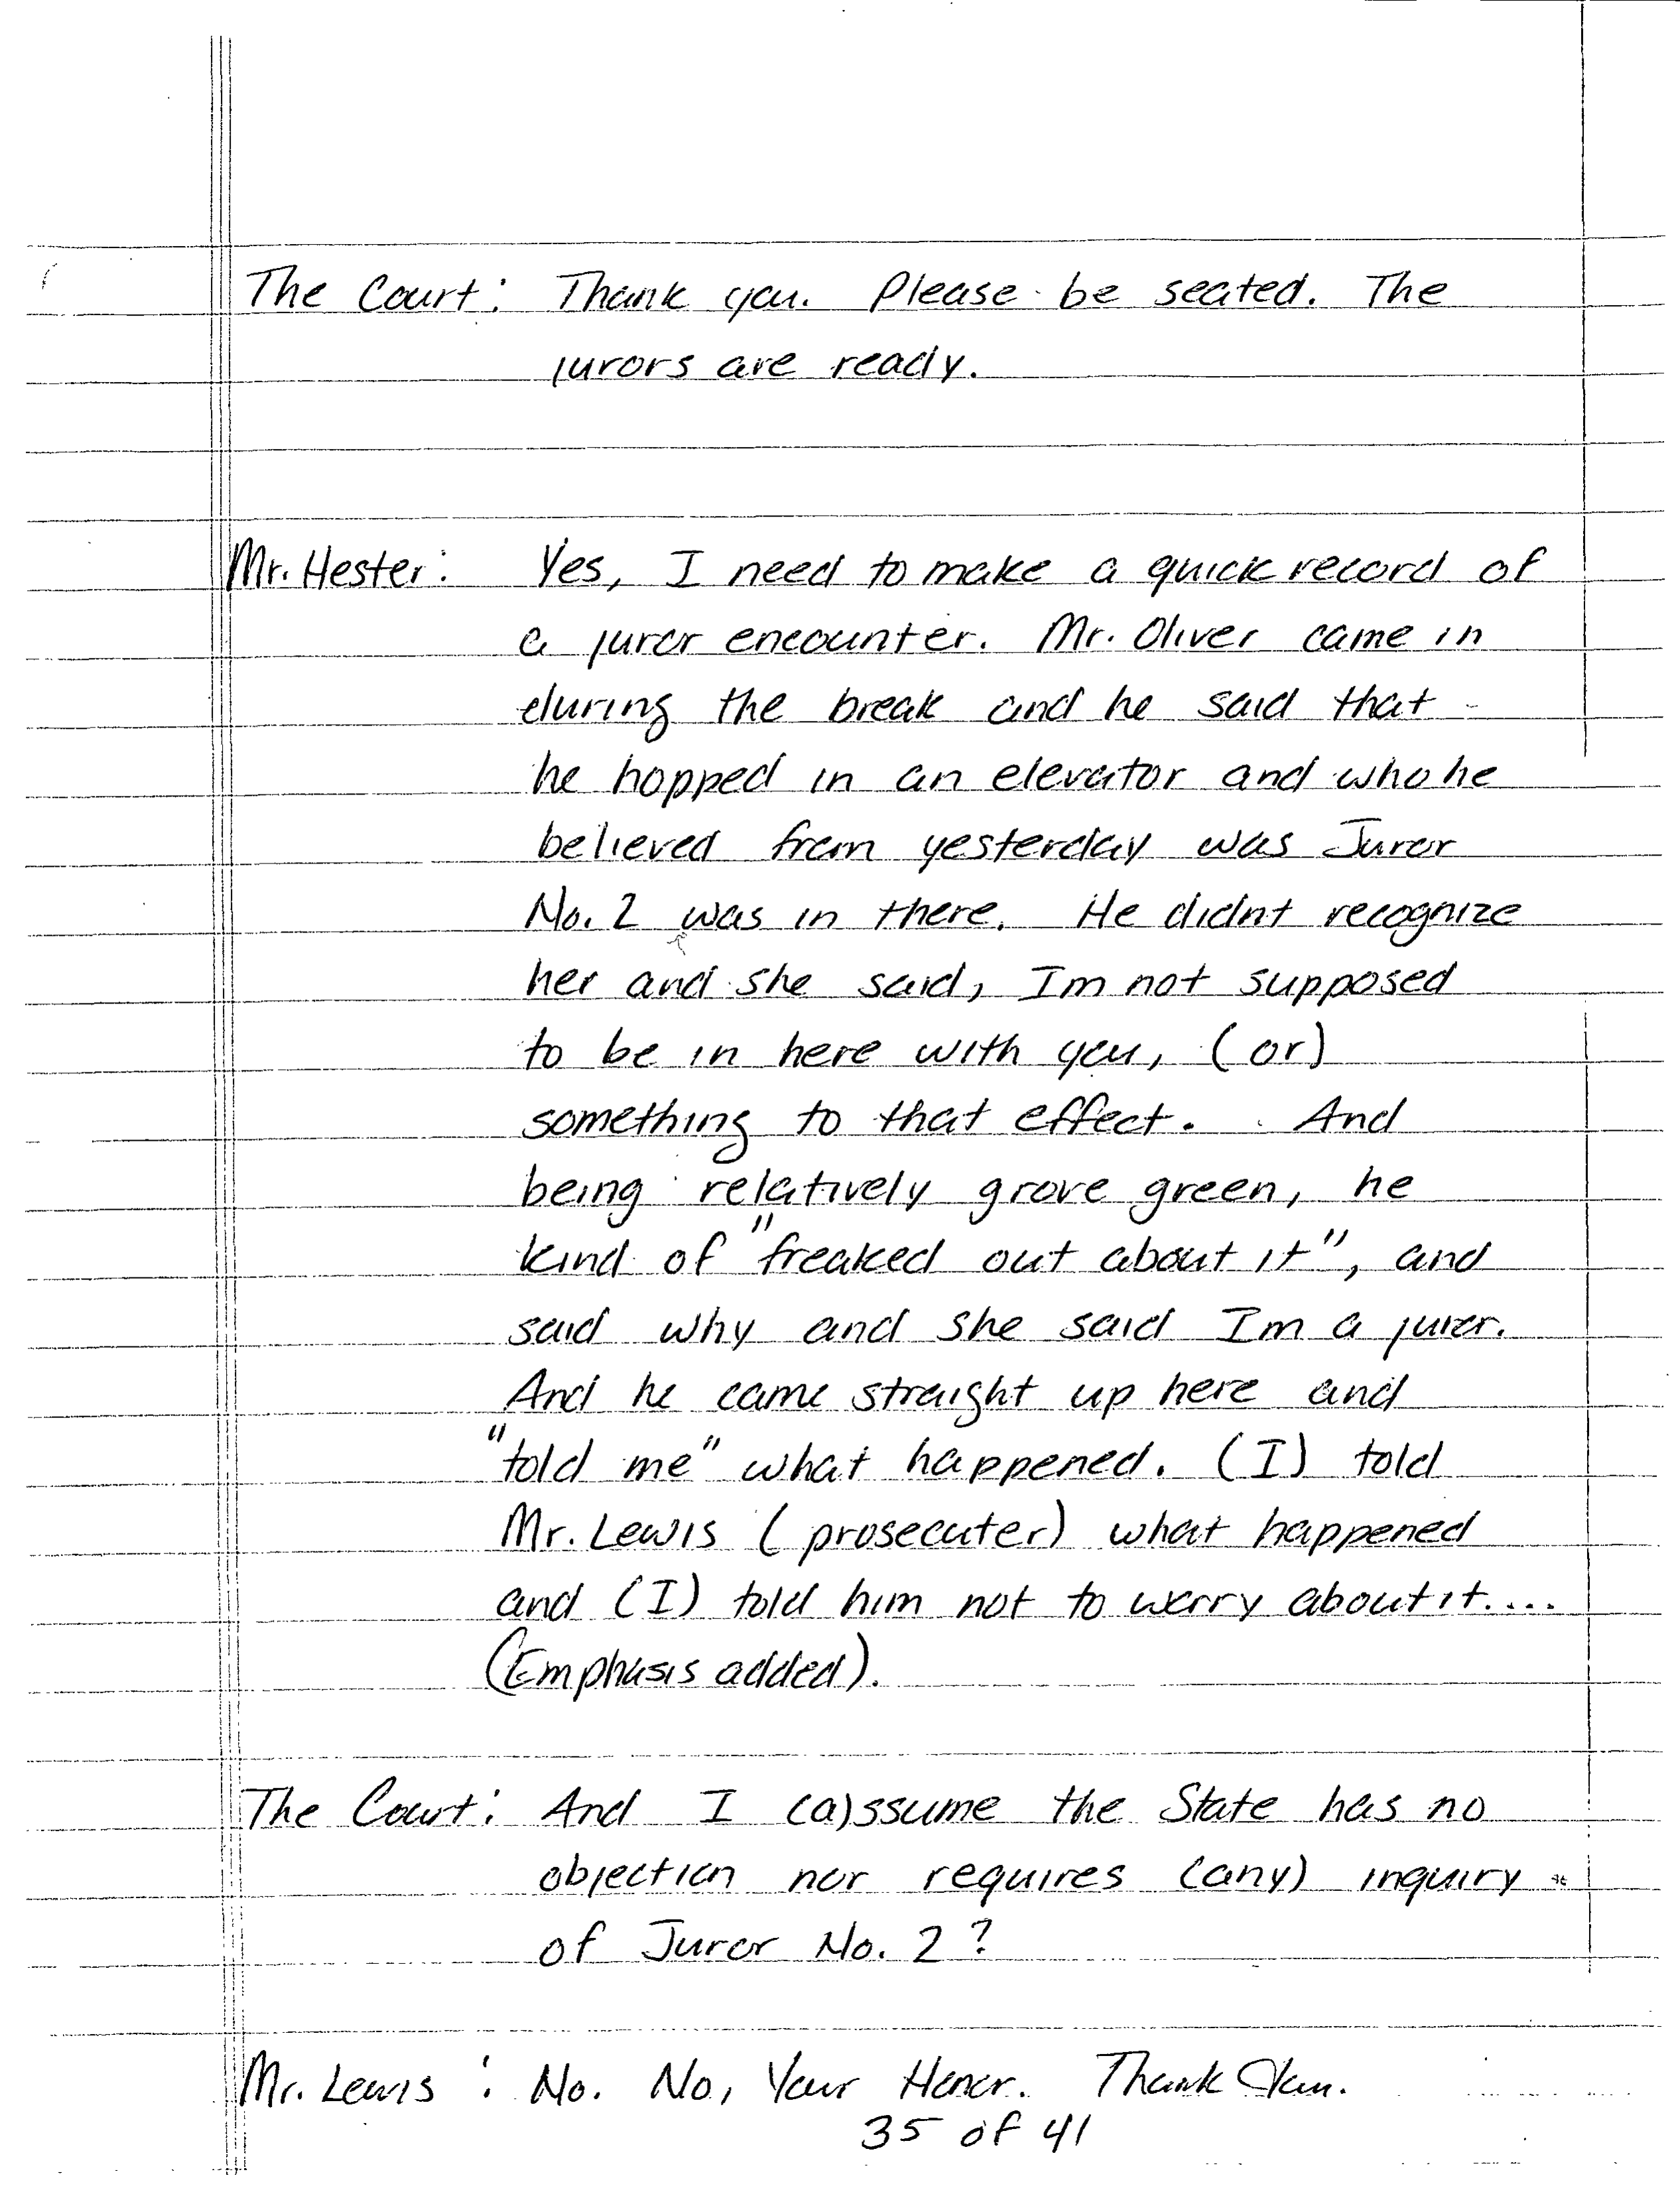 The Court: Thank you. Please be seated. The
jurors are ready.
Mr. Hester: Yes, I need to make a quick record of
a juror encounter. Mr. Oliver came in
during the break and he said that
he hopped in an elevator and who he
believed from yesterday was Juror
No. 2 was in there. He didnt recognize
her and she said, Im not supposed
to be in here with you, (or)
something to that effect. And
being relatively grove green, he
kind of "freaked out about it", and
said why and she said Im a juror.
And he came straight up here and
"told me" what happened. (I) told
Mr. Lewis (prosecuter) what happened
and (I) told him not to worry about it....
(Emphasis added).
The Court: And I (a)ssume the State has no
objection nor requires (any) inquiry
of Juror No. 2?
Mr. Lewis: No. No, Your Honor. Thank You.
35 of 41